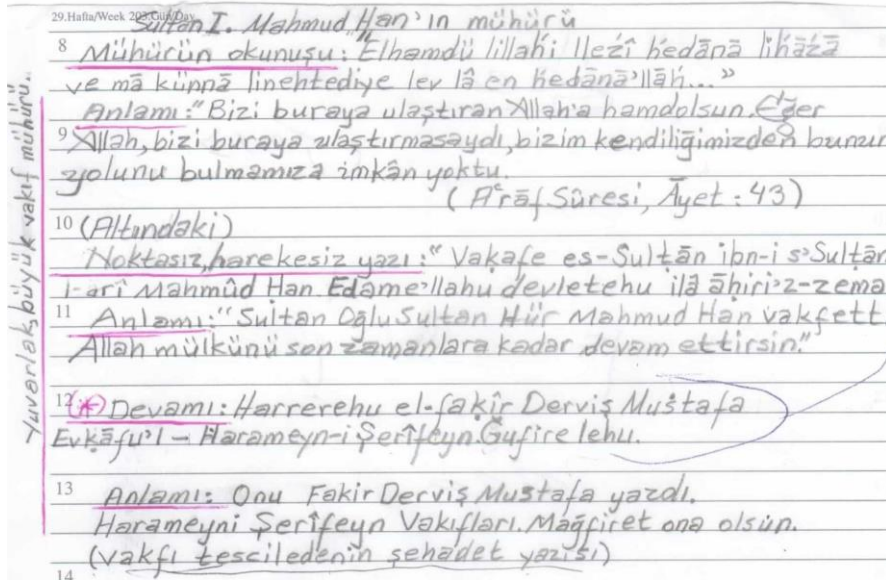 29.Hafta/Week 203.Gün/Day
Sultan I. Mahmud Han'ın mühürü
8 Mühürün okunuşu: "Elhamdü lillahi llezî hedānā lihāẕā
ve mā künnā linehtediye lev lâ en hedānā'llāh..."
Anlamı: "Bizi buraya ulaştıran Allah'a hamdolsun. Eğer
9 Allah, bizi buraya ulaştırmasaydı, bizim kendiliğimizden bunun
yolunu bulmamıza imkân yoktu.
(Aʿrāf Sûresi, Āyet : 43)
10 (Altındaki)
Noktasız, harekesiz yazı: "Vaḳafe es-Sulṭān ibn-i s'Sulṭān
Mahmûd Han Edāme'llahu devletehu ilā āhiri'z-zema
11 Anlamı: "Sultan Oğlu Sultan Hür Mahmud Han vakfett
Allah mülkünü son zamanlara kadar devam ettirsin."
12 (*) Devamı: Harrerehu el-faḳîr Derviş Muṣṭafa
Evḳāfu'l – Harameyn-i Şerîfeyn. Ğufire lehu.
13 Anlamı: Onu Fakir Derviş Mustafa yazdı.
Harameyni Şerîfeyn Vakıfları. Mağfiret ona olsun.
(vakfı tescil edenin şehadet yazısı)
14
Yuvarlak, büyük vakıf mühürü.